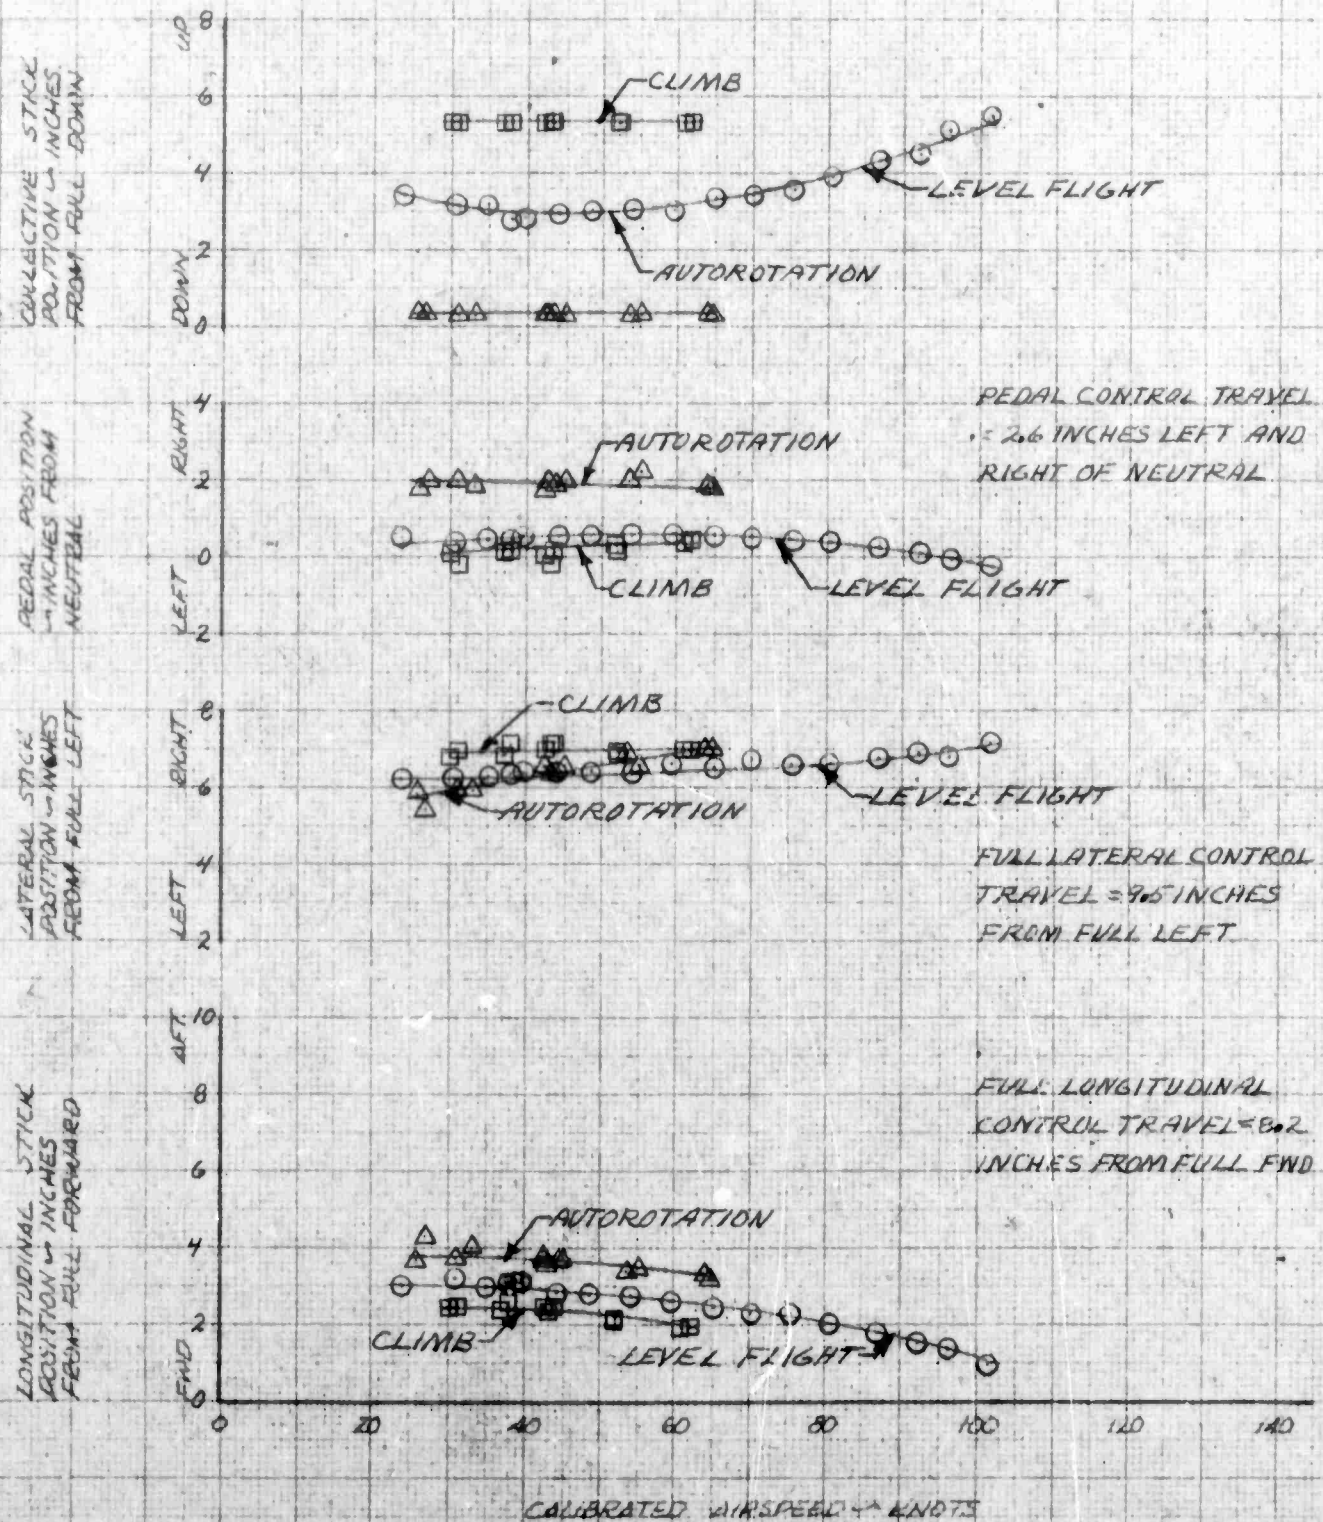 COLLECTIVE STICK
POSITION ~ INCHES
FROM FULL DOWN
UP
DOWN
8
6
4
2
0
CLIMB
LEVEL FLIGHT
AUTOROTATION
PEDAL POSITION
~ INCHES FROM
NEUTRAL
RIGHT
LEFT
4
2
0
2
AUTOROTATION
CLIMB
LEVEL FLIGHT
PEDAL CONTROL TRAVEL
= 2.6 INCHES LEFT AND
RIGHT OF NEUTRAL
LATERAL STICK
POSITION ~ INCHES
FROM FULL LEFT
RIGHT
LEFT
8
6
4
2
CLIMB
AUTOROTATION
LEVEL FLIGHT
FULL LATERAL CONTROL
TRAVEL = 9.5 INCHES
FROM FULL LEFT
LONGITUDINAL STICK
POSITION ~ INCHES
FROM FULL FORWARD
AFT
FWD
10
8
6
4
2
0
AUTOROTATION
CLIMB
LEVEL FLIGHT
FULL LONGITUDINAL
CONTROL TRAVEL = 8.2
INCHES FROM FULL FWD
0 20 40 60 80 100 120 140
CALIBRATED AIRSPEED ~ KNOTS